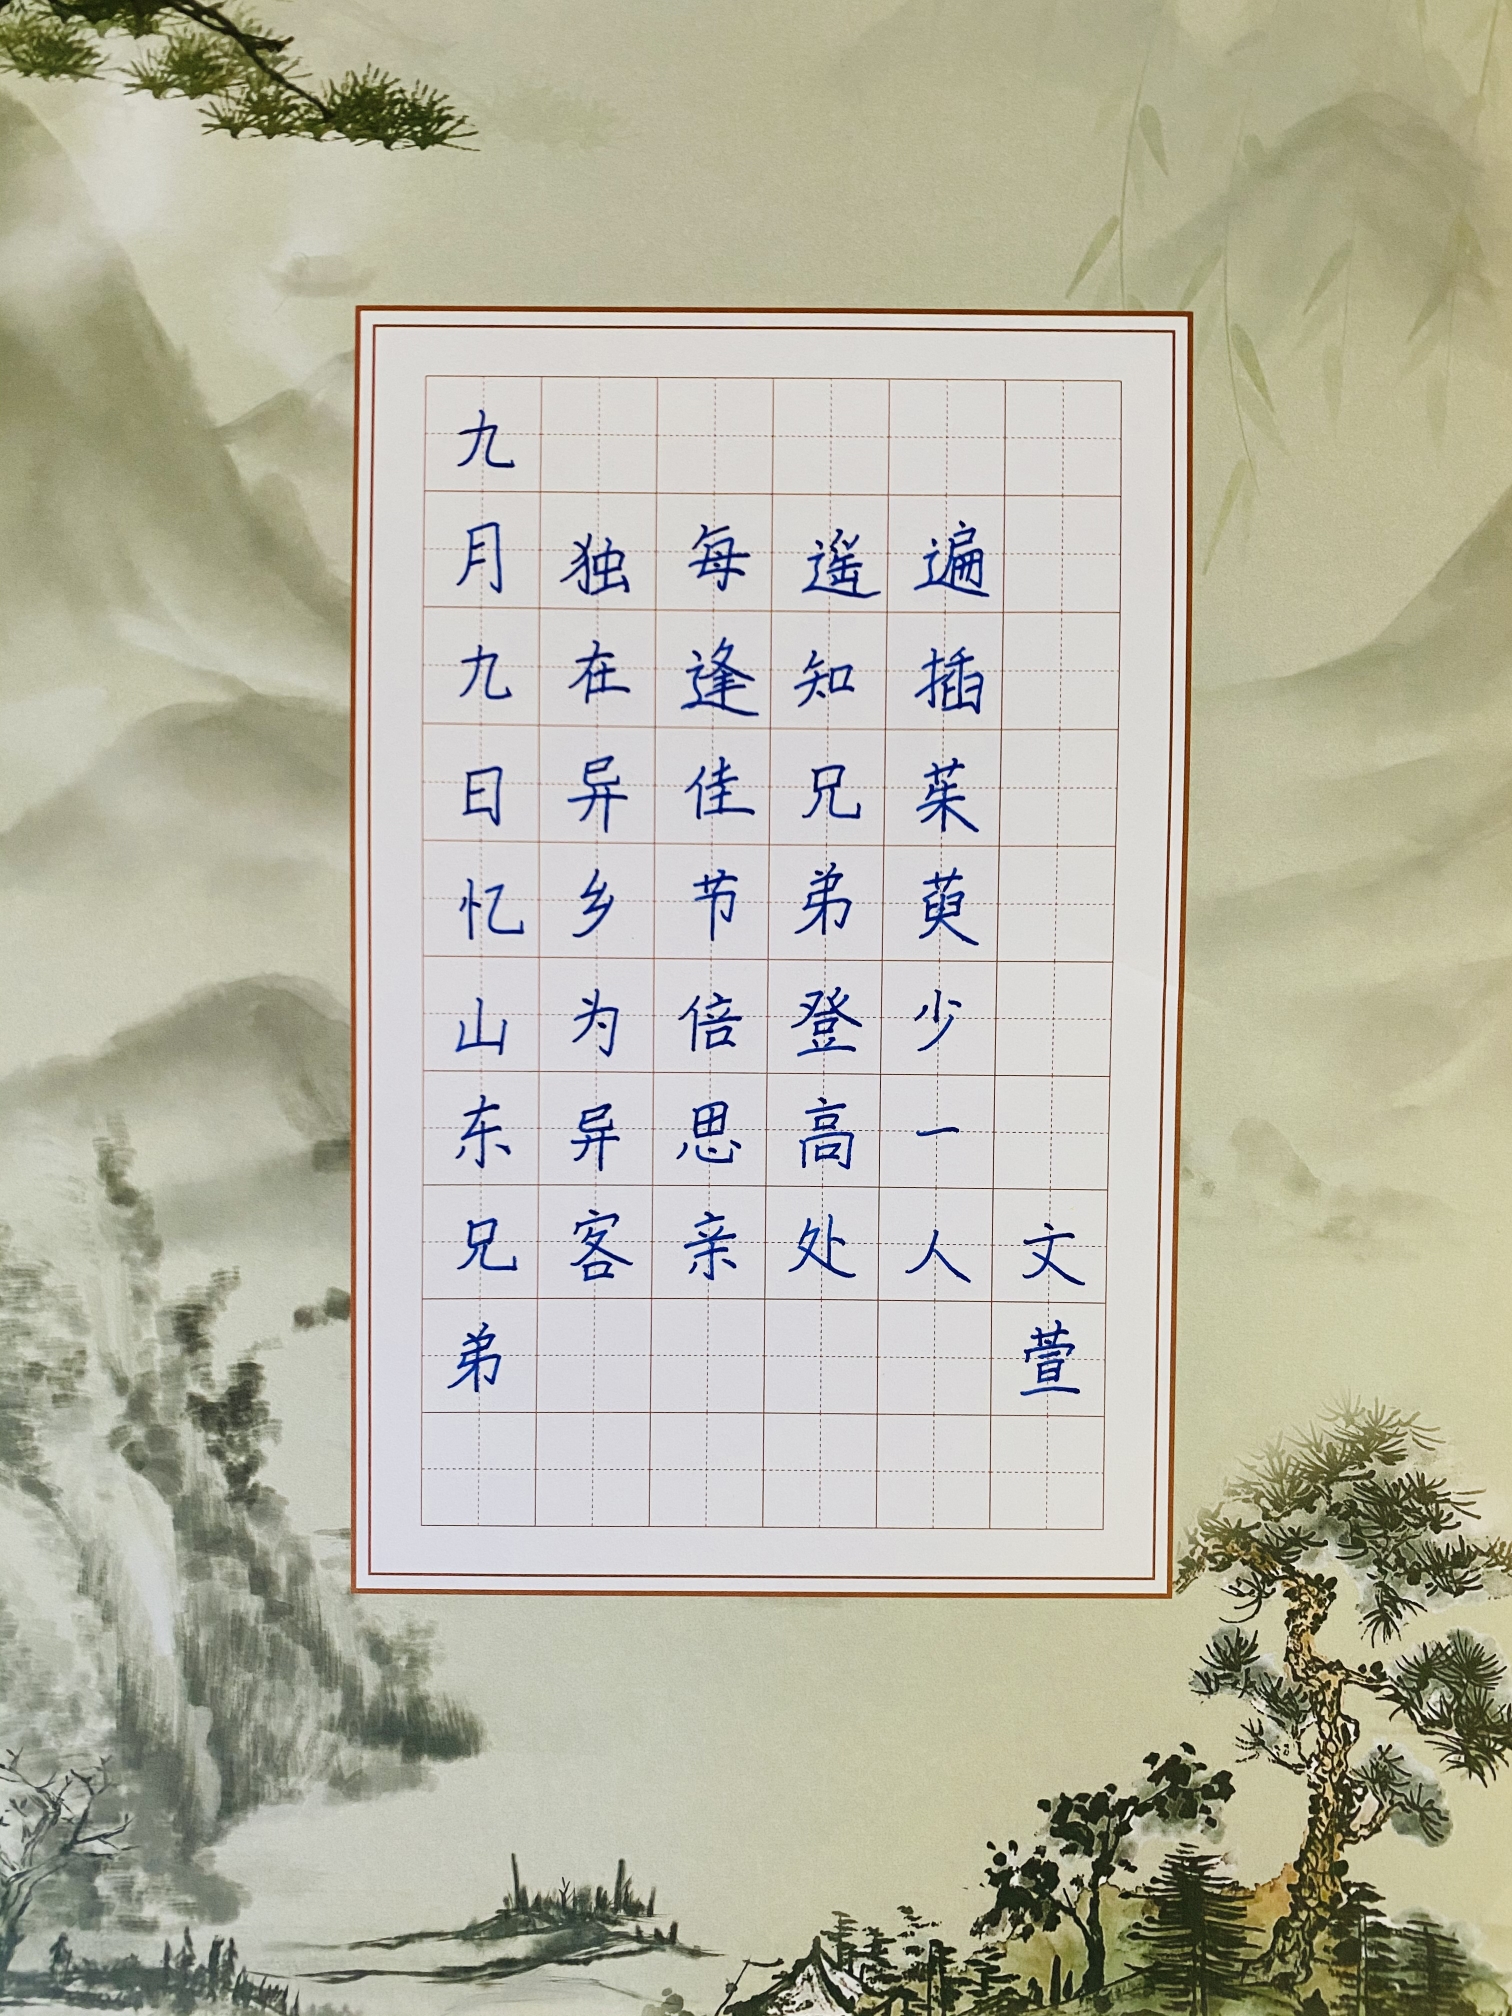 九月九日忆山东兄弟
独在异乡为异客
每逢佳节倍思亲
遥知兄弟登高处
遍插茱萸少一人
文萱